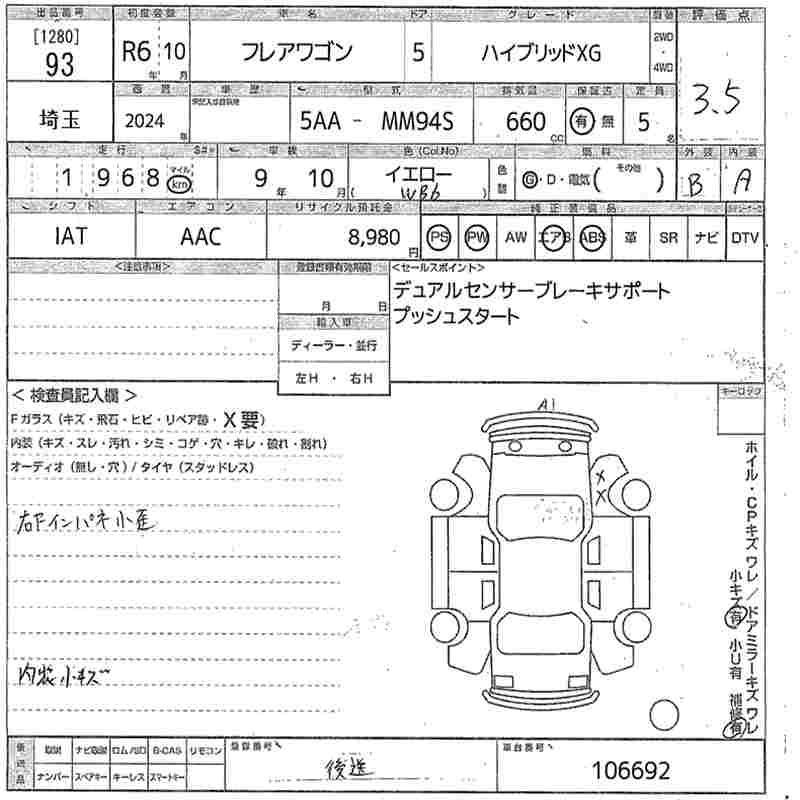 出品番号 初度登録 車名 ドア グレード 駆動 評価点
[1280] 93 R6年 10月 フレアワゴン 5 ハイブリッドXG 2WD・4WD 3.5
西暦 車歴 型式 排気量 保証書 定員
埼玉 2024年 5AA - MM94S 660cc 有 無 5名
走行 車検 色(Col.No) 燃料 外装 内装
1968 マイル km 9年 10月 イエロー (WB6) 色替 G・D・電気 (その他) B A
シフト エアコン リサイクル預託金 純正装備品
IAT AAC 8,980円 PS PW AW エアB ABS 革 SR ナビ DTV
<注意事項> 登録書類有効期限 <セールスポイント>
月 日 デュアルセンサーブレーキサポート
輸入車 プッシュスタート
ディーラー・並行
左H ・ 右H
<検査員記入欄> キーロック
Fガラス (キズ・飛石・ヒビ・リペア跡・X要)
内装 (キズ・スレ・汚れ・シミ・コゲ・穴・キレ・破れ・割れ)
オーディオ (無し・穴) / タイヤ (スタッドレス)
A1
X
X
右下インパネ小
内装小キズ
ホイル・CPキズ ワレ / ドアミラーキズ ワレ
小キズ有 小U有 補修有
後送品 取説 ナビ取説 ロム/SD B-CAS リモコン 登録番号 車台番号
ナンバー スペアキー キーレス スマートキー 後送 106692